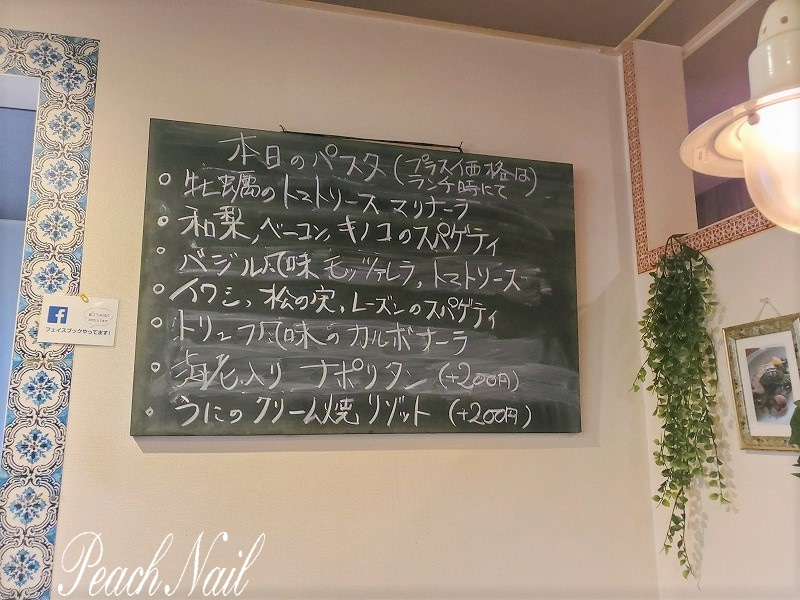 本日のパスタ (プラス価格は
ランチ時にて)
○ 牡蠣のトマトソース マリナーラ
○ 和梨、ベーコン、キノコのスパゲティ
○ バジル風味 モッツァレラ、トマトソース
○ イワシ、松の実、レーズンのスパゲティ
○ トリュフ風味のカルボナーラ
○ 海老入り ナポリタン (+200円)
○ うにのクリーム焼リゾット (+200円)
フェイスブックやってます!
Peach Nail